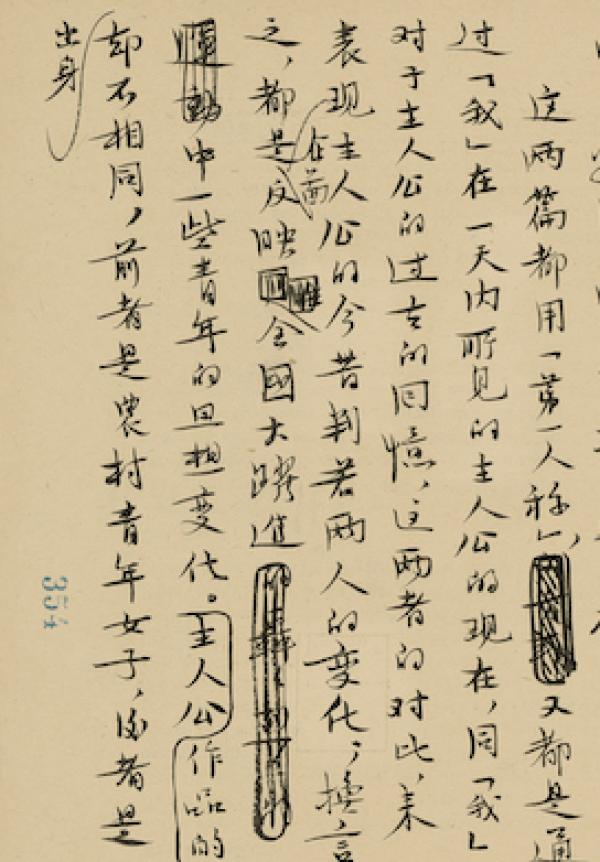 这两篇都用「第一人称」，又都是通
过「我」在一天内所见的主人公的现在，同「我」
对于主人公的过去的回忆，这两者的对比，来
表现主人公的今昔判若两人的变化；换言
之，都是反映全國大躍進
運動中一些青年的思想变化。主人公作品的
却不相同，前者是農村青年女子，後者是
出身
354